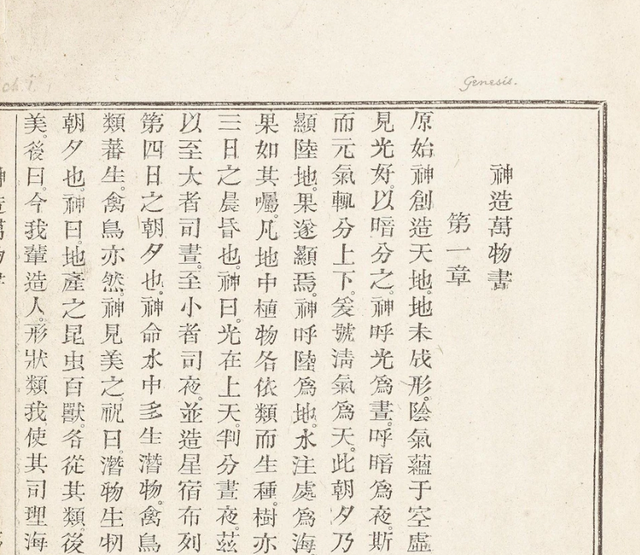 ch. 1.
Genesis.
神造萬物書
第一章
原始神創造天地。地未成形。陰氣蘊于空虛
見光好。以暗分之。神呼光爲晝。呼暗爲夜。斯
而元氣輒分上下。爰號淸氣爲天。此朝夕乃
顯陸地。果遂顯焉。神呼陸爲地。水注處爲海
果如其囑。凡地中植物各依類而生種。樹亦
三日之晨昏也。神曰。光在上天。判分晝夜。茲
以至大者司晝。至小者司夜。並造星宿布列
第四日之朝夕也。神命水中多生潛物禽鳥
類蕃生。禽鳥亦然。神見美之。祝曰。潛物生物
朝夕也。神曰。地產之昆虫百獸。各從其類。後
美。後曰。今我輩造人。形狀類我。使其司理海
神造萬物書